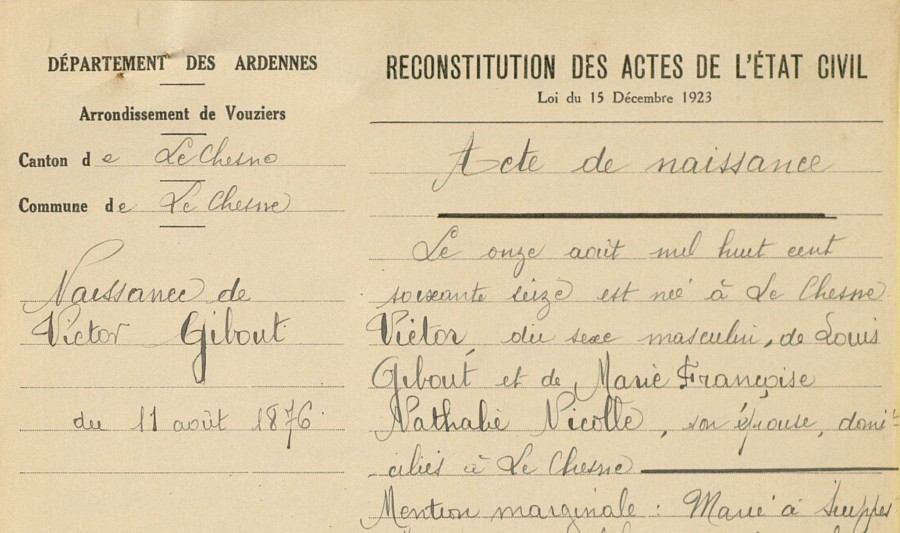 DÉPARTEMENT DES ARDENNES
Arrondissement de Vouziers
Canton de Le Chesne
Commune de Le Chesne
Naissance de
Victor Gibout
du 11 août 1876
RECONSTITUTION DES ACTES DE L'ÉTAT CIVIL
Loi du 15 Décembre 1923
Acte de naissance
Le onze août mil huit cent
soixante seize est né à Le Chesne
Victor, du sexe masculin, de Louis
Gibout et de Marie Françoise
Nathalie Nicolle, son épouse, domi-
ciliés à Le Chesne
Mention marginale : Marié à Suippes